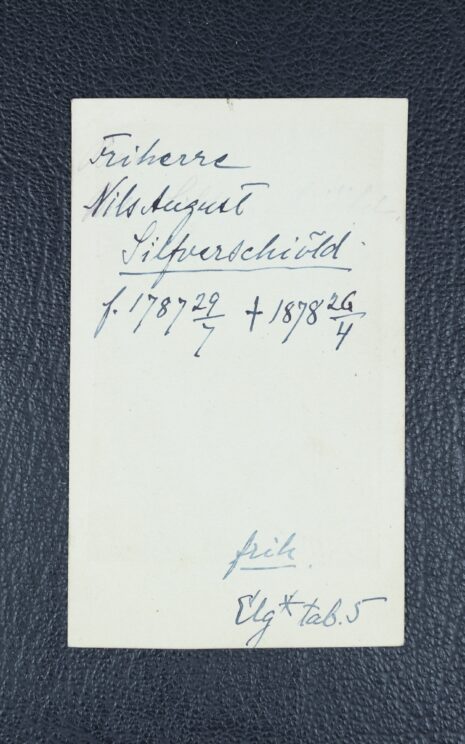 Friherre
Nils August
Silfverschiöld
f. 1787 29/7 † 1878 26/4
frih.
Elg* tab. 5